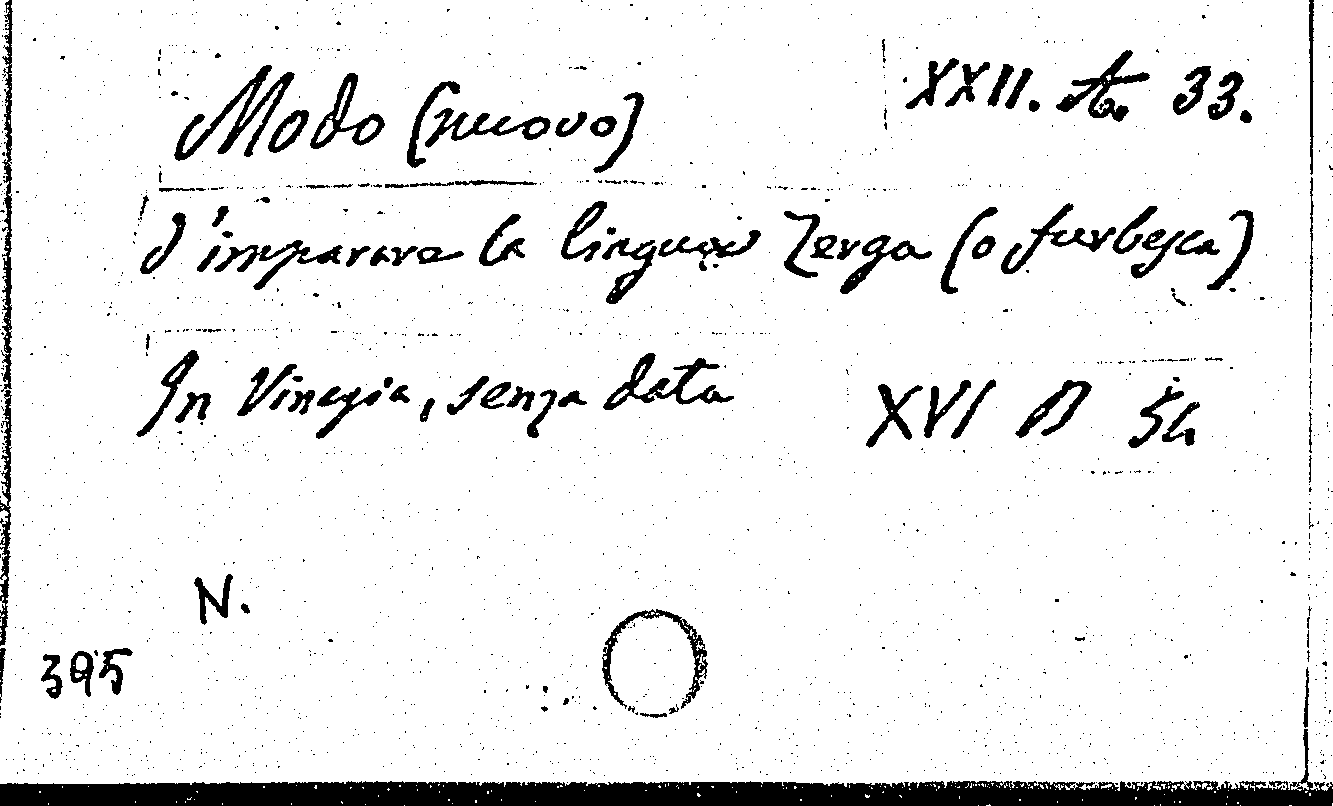 Modo (nuovo) XXII. A. 33.
d'imparare la lingua Zerga (o furbesca)
In Vinegia, senza data XVI D 54
N.
395